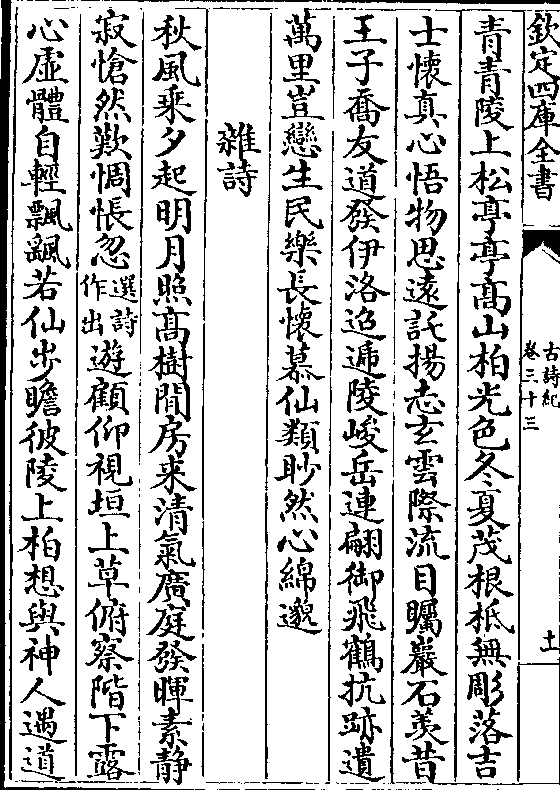 欽定四庫全書
古詩紀
卷三十三
十
青青陵上松亭亭髙山柏光色冬夏茂根柢無彫落吉
士懷真心悟物思遠託揚志玄雲際流目矚巖石羡昔
王子喬友道發伊洛迢遞陵峻岳連翩御飛鶴抗跡遺
萬里豈戀生民樂長懷慕仙類眇然心綿邈
雜詩
秋風乘夕起明月照髙樹閒房来清氣廣庭發暉素静
寂愴然歎惆悵忽選詩作出遊顧仰視垣上草俯察階下露
心虛體自輕飄飖若仙步瞻彼陵上柏想與神人遇道